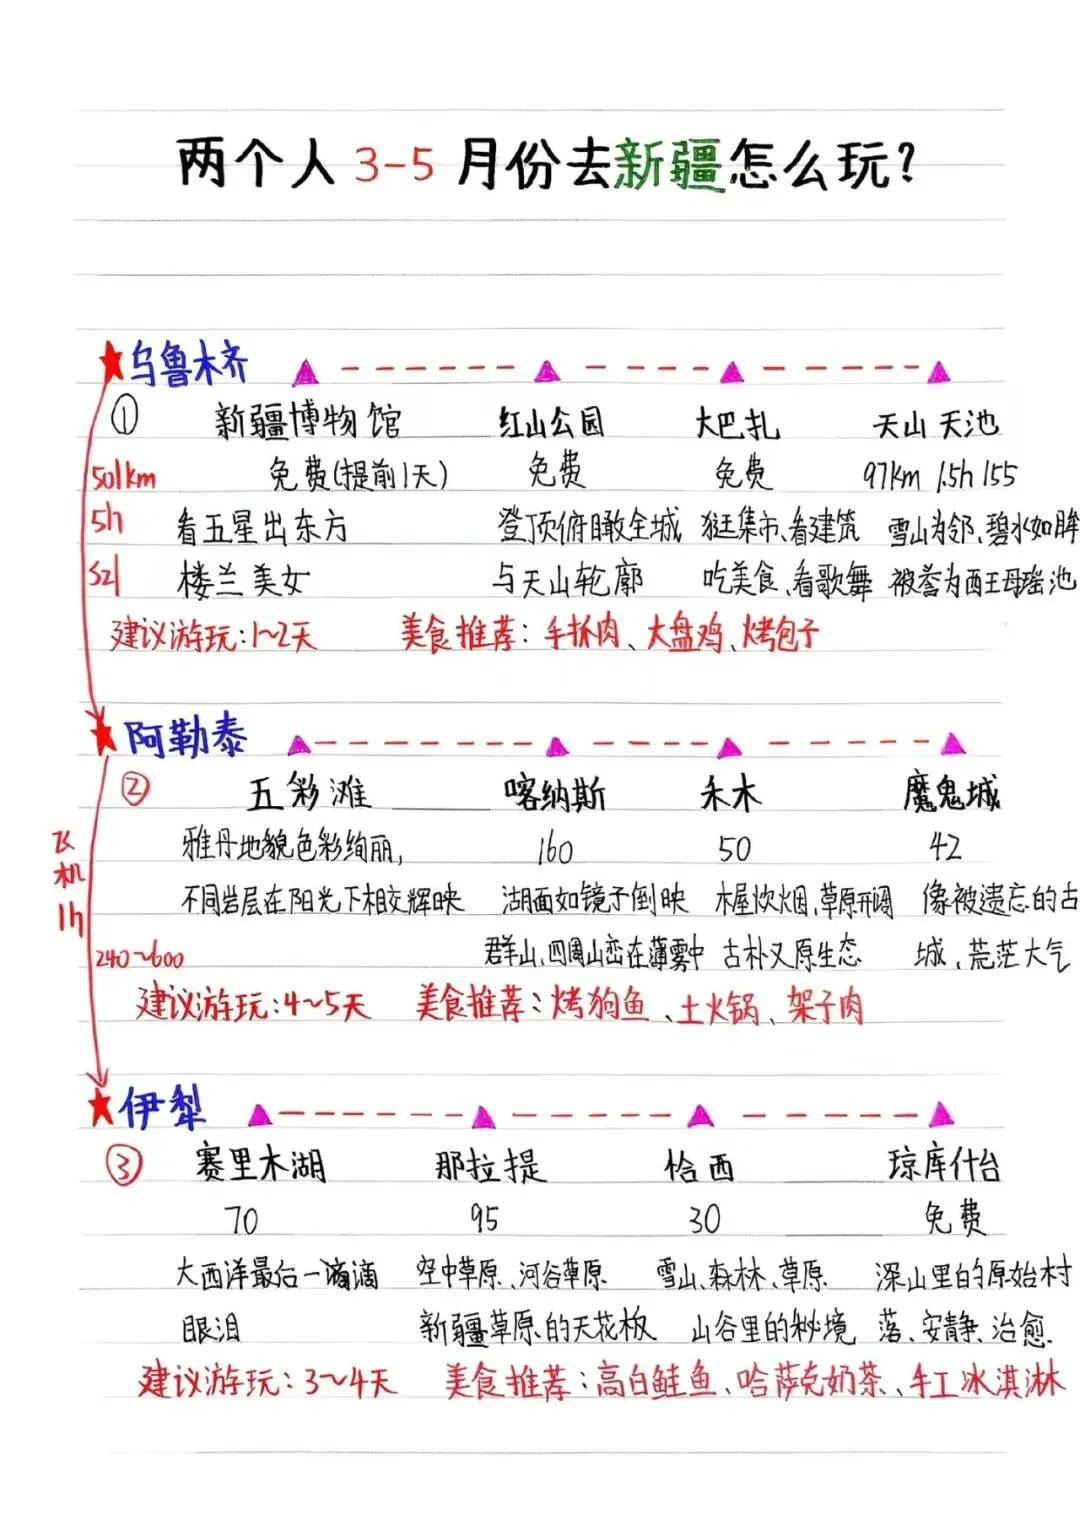 两个人3-5月份去新疆怎么玩?
乌鲁木齐
① 新疆博物馆 红山公园 大巴扎 天山天池
501km 免费(提前1天) 免费 免费 97km 1.5h 155
5h 看五星出东方 登顶俯瞰全城 逛集市、看建筑 雪山为邻、碧水如眸
521 楼兰美女 与天山轮廓 吃美食、看歌舞 被誉为西王母瑶池
建议游玩:1~2天 美食推荐:手抓肉、大盘鸡、烤包子
阿勒泰
② 五彩滩 喀纳斯 禾木 魔鬼城
飞机1h 雅丹地貌色彩绚丽, 160 50 42
不同岩层在阳光下相交辉映 湖面如镜子倒映 木屋炊烟、草原开阔 像被遗忘的古
240~600 群山、四周山峦在薄雾中 古朴又原生态 城、荒茫大气
建议游玩:4~5天 美食推荐:烤狗鱼、土火锅、架子肉
伊犁
③ 赛里木湖 那拉提 恰西 琼库什台
70 95 30 免费
大西洋最后一滴滴 空中草原、河谷草原 雪山、森林、草原 深山里的原始村
眼泪 新疆草原的天花板 山谷里的秘境 落、安静、治愈.
建议游玩:3~4天 美食推荐:高白鲑鱼、哈萨克奶茶、手工冰淇淋